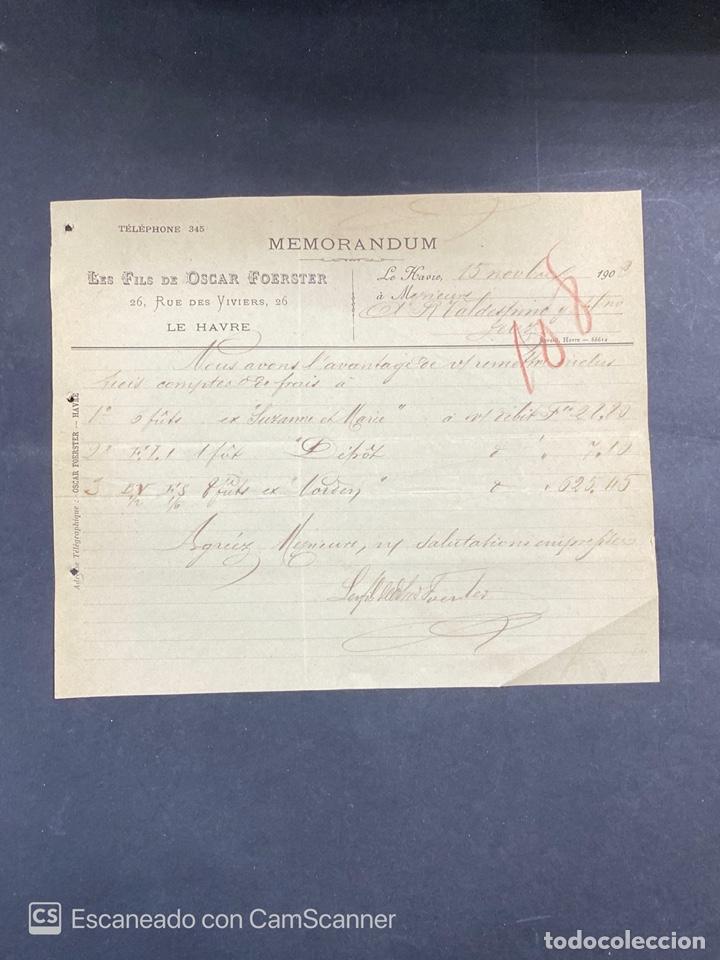 TÉLÉPHONE 345
MEMORANDUM
LES FILS DE OSCAR FOERSTER
26, RUE DES VIVIERS, 26
LE HAVRE
Le Havre, 15 novbre 190
à Messieurs
A. R. Valdespino y Hno
Jerez
Havre — 88614
108
Nous avons l'avantage de v/ remettre inclus
trois comptes de frais à
1º 2 fûts ex "Suzanne et Marie" à v/ débit Fcs 21.20
2º F.I.1 1 fût "Dépôt" d° " 7.10
3 8 fûts ex d° " 625.45
Agréez Messieurs, n/ salutations empressées
Les fils de Oscar Foerster
Adresse Télégraphique : OSCAR FOERSTER — HAVRE
CS Escaneado con CamScanner
todocoleccion